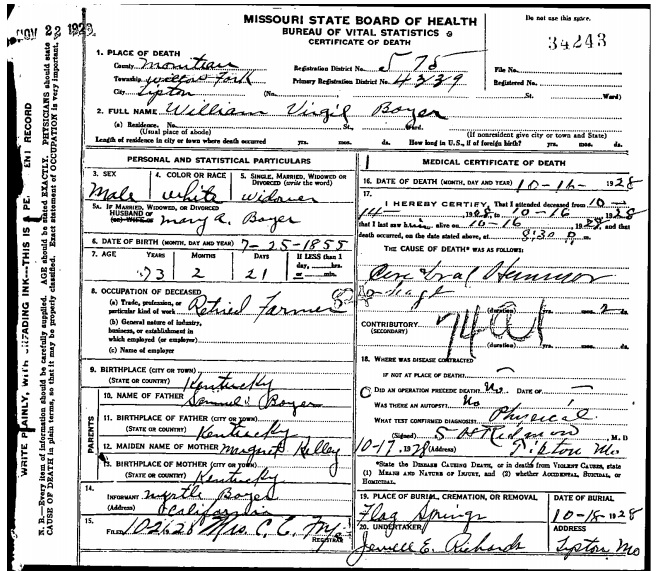 NOV 22 192
MISSOURI STATE BOARD OF HEALTH
BUREAU OF VITAL STATISTICS
CERTIFICATE OF DEATH
Do not use this space.
34243
1. PLACE OF DEATH
County Moniteau
Township Willow Fork
City Tipton (No.
Registration District No. 575
Primary Registration District No. 4339
File No.
Registered No.
St. Ward)
2. FULL NAME William Virgil Boyer
(a) Residence. No. St., Ward.
(Usual place of abode) (If nonresident give city or town and State)
Length of residence in city or town where death occurred yrs. mos. ds. How long in U.S., if of foreign birth? yrs. mos. ds.
PERSONAL AND STATISTICAL PARTICULARS
3. SEX Male
4. COLOR OR RACE white
5. SINGLE, MARRIED, WIDOWED OR DIVORCED (write the word) widower
5a. IF MARRIED, WIDOWED, OR DIVORCED
HUSBAND OF
(OR) WIFE OF Mary A. Boyer
6. DATE OF BIRTH (MONTH, DAY AND YEAR) 7-25-1855
7. AGE YEARS MONTHS DAYS If LESS than 1 day, ....hrs. or ....min.
73 2 21
8. OCCUPATION OF DECEASED
(a) Trade, profession, or particular kind of work Retired Farmer
(b) General nature of industry, business, or establishment in which employed (or employer)
(c) Name of employer
9. BIRTHPLACE (CITY OR TOWN)
(STATE OR COUNTRY) Kentucky
PARENTS
10. NAME OF FATHER Samuel Boyer
11. BIRTHPLACE OF FATHER (CITY OR TOWN)
(STATE OR COUNTRY) Kentucky
12. MAIDEN NAME OF MOTHER Margret Kelley
13. BIRTHPLACE OF MOTHER (CITY OR TOWN)
(STATE OR COUNTRY) Kentucky
14. INFORMANT Myrtle Boyer
(Address) California
15. FILED 10-26-28 Mrs. C. C.
REGISTRAR
MEDICAL CERTIFICATE OF DEATH
16. DATE OF DEATH (MONTH, DAY AND YEAR) 10-16- 1928
17. I HEREBY CERTIFY, That I attended deceased from 10-
14-, 1928, to 10-16, 1928
that I last saw h alive on 10-16, 1928, and that
death occurred, on the date stated above, at 8:30 P. m.
THE CAUSE OF DEATH* WAS AS FOLLOWS:
(duration) yrs. mos. 2 ds.
CONTRIBUTORY
(SECONDARY)
(duration) yrs. mos. ds.
18. WHERE WAS DISEASE CONTRACTED
IF NOT AT PLACE OF DEATH?
DID AN OPERATION PRECEDE DEATH? No DATE OF
WAS THERE AN AUTOPSY? No
WHAT TEST CONFIRMED DIAGNOSIS? Physical
(Signed) S H Redmon, M. D
10-17, 1928 (Address) Tipton Mo
*State the DISEASE CAUSING DEATH, or in deaths from VIOLENT CAUSES, state
(1) MEANS AND NATURE OF INJURY, and (2) whether ACCIDENTAL, SUICIDAL, or
HOMICIDAL.
19. PLACE OF BURIAL, CREMATION, OR REMOVAL Flag Springs
DATE OF BURIAL 10-18-1928
20. UNDERTAKER Jewell E. Richards
ADDRESS Tipton Mo
WRITE PLAINLY, WITH UNFADING INK---THIS IS A PE ENT RECORD
N. B.—Every item of information should be carefully supplied. AGE should be stated EXACTLY. PHYSICIANS should state
CAUSE OF DEATH in plain terms, so that it may be properly classified. Exact statement of OCCUPATION is very important.